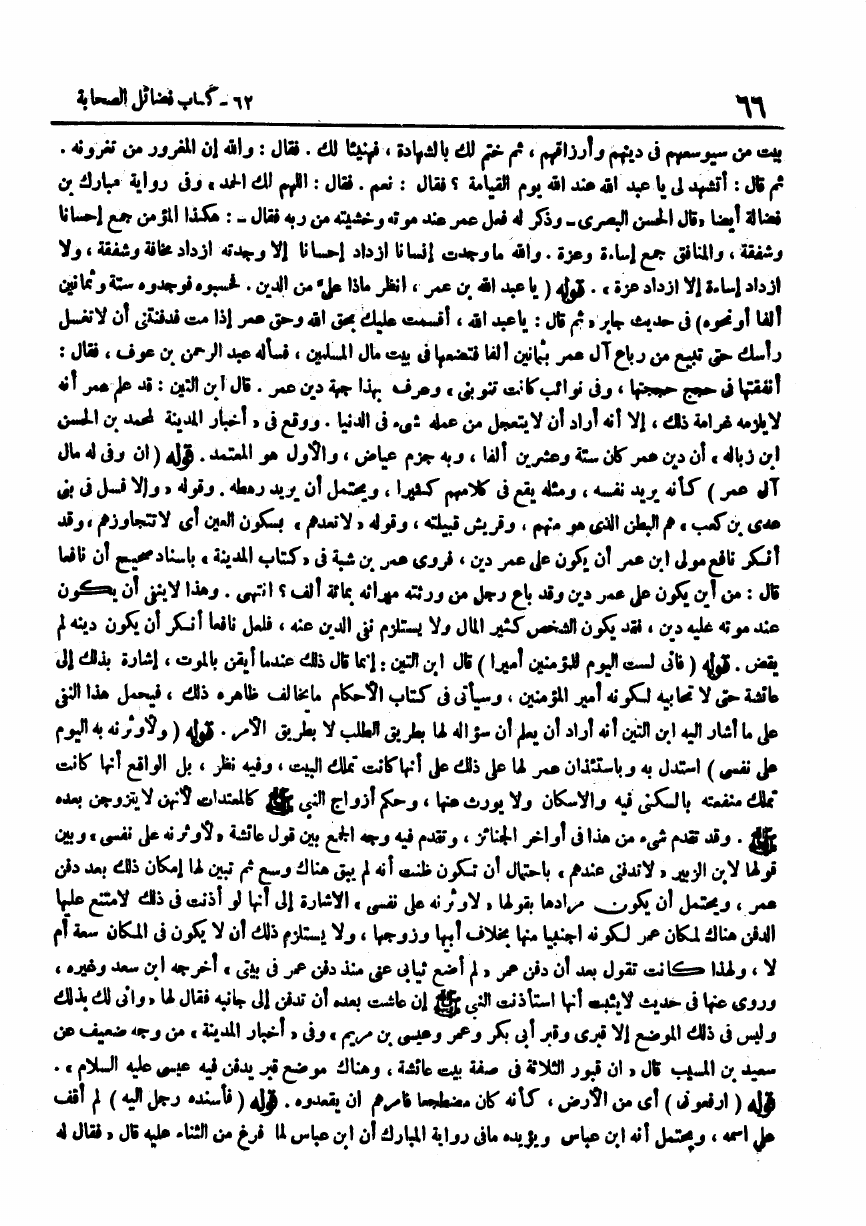 ٦٦
٦٢ - كتاب فضائل الصحابة
بيت من سيوسعهم فى دينهم وأرزاقهم ، ثم ختم لك بالشهادة ، فهنيئا لك . فقال : والله إن المغرور من تغرونه .
ثم قال : أتشهد لى يا عبد الله عند الله يوم القيامة ؟ فقال : نعم . فقال : اللهم لك الحمد » وفى رواية مبارك بن
فضالة أيضا « قال الحسن البصرى - وذكر له فعل عمر عند موته وخشيته من ربه فقال - : هكذا المؤمن جمع إحسانا
وشفقة ، والمنافق جمع إساءة وعزة . والله ما وجدت إنسانا ازداد إحسانا إلا وجدته ازداد مخافة وشفقة ، ولا
ازداد إساءة إلا ازداد عزة » . قوله ( يا عبد الله بن عمر ، انظر ماذا علىّ من الدين . فحسبوه فوجدوه ستة وثمانين
ألفا أو نحوه ) فى حديث جابر « ثم قال : يا عبد الله ، أقسمت عليك بحق الله وحق عمر إذا مت فدفنتنى أن لا تغسل
رأسك حتى تبيع من رباع آل عمر بثمانين ألفا فتضعها فى بيت مال المسلمين ، فسأله عبد الرحمن بن عوف ، فقال :
أنفقتها فى حجج حججتها ، وفى نوائب كانت تنوبنى » وعرف بهذا جهة دين عمر . قال ابن التين : قد علم عمر أنه
لا يلزمه غرامة ذلك ، إلا أنه أراد أن لا يتعجل من عمله شىء فى الدنيا . ووقع فى « أخبار المدينة لمحمد بن الحسن
ابن زبالة » أن دين عمر كان ستة وعشرين ألفا ، وبه جزم عياض ، والأول هو المعتمد . قوله ( ان وفى له مال
آل عمر ) كأنه يريد نفسه ، ومثله يقع فى كلامهم كثيرا ، ويحتمل أن يريد رهطه . وقوله « وإلا فسل فى بنى
عدى بن كعب » هم البطن الذى هو منهم ، وقريش قبيلته ، وقوله « لا تعدهم » بسكون العين أى لا تتجاوزهم ، وقد
أنكر نافع مولى ابن عمر أن يكون على عمر دين ، فروى عمر بن شبة فى « كتاب المدينة » باسناد صحيح أن نافعا
قال : من أين يكون على عمر دين وقد باع رجل من ورثته ميراثه بمائة ألف ؟ انتهى . وهذا لا ينفى أن يكون
عند موته عليه دين ، فقد يكون الشخص كثير المال ولا يستلزم نفى الدين عنه ، فلعل نافعا أنكر أن يكون دينه لم
يقض . قوله ( فانى لست اليوم للمؤمنين أميرا ) قال ابن التين : إنما قال ذلك عندما أيقن بالموت ، إشارة بذلك إلى
عائشة حتى لا تحابيه لكونه أمير المؤمنين ، وسيأتى فى كتاب الأحكام ما يخالف ظاهره ذلك ، فيحمل هذا النفى
على ما أشار اليه ابن التين أنه أراد أن يعلم أن سؤاله لها بطريق الطلب لا بطريق الأمر . قوله ( ولأوثرنه به اليوم
على نفسى ) استدل به وباستئذان عمر لها على ذلك على أنها كانت تملك البيت ، وفيه نظر ، بل الواقع أنها كانت
تملك منفعته بالسكنى فيه والاسكان ولا يورث عنها ، وحكم أزواج النبى ﷺ كالمعتدات لأنهن لا يتزوجن بعده
ﷺ . وقد تقدم شىء من هذا فى أواخر الجنائز ، وتقدم فيه وجه الجمع بين قول عائشة « لأوثرنه على نفسى » وبين
قولها لابن الزبير « لا تدفنى عندهم » باحتمال أن تكون ظنت أنه لم يبق هناك وسع ثم تبين لها إمكان ذلك بعد دفن
عمر ، ويحتمل أن يكون مرادها بقولها « لأوثرنه على نفسى » الاشارة إلى أنها لو أذنت فى ذلك لامتنع عليها
الدفن هناك لمكان عمر لكونه اجنبيا منها بخلاف أبيها وزوجها ، ولا يستلزم ذلك أن لا يكون فى المكان سعة أم
لا ، ولهذا كانت تقول بعد أن دفن عمر « لم أضع ثيابى عنى منذ دفن عمر فى بيتى » أخرجه ابن سعد وغيره ،
وروى عنها فى حديث لا يثبت أنها استأذنت النبى ﷺ إن عاشت بعده أن تدفن إلى جانبه فقال لها « وانى لك بذلك
وليس فى ذلك الموضع إلا قبرى وقبر أبى بكر وعمر وعيسى بن مريم » وفى « أخبار المدينة » من وجه ضعيف عن
سعيد بن المسيب قال « ان قبور الثلاثة فى صفة بيت عائشة ، وهناك موضع قبر يدفن فيه عيسى عليه السلام » .
قوله ( ارفعونى ) أى من الأرض ، كأنه كان مضطجعا فامرهم ان يقعدوه . قوله ( فأسنده رجل اليه ) لم أقف
على اسمه ، ويحتمل أنه ابن عباس ويؤيده ما فى رواية المبارك أن ابن عباس لما فرغ من الثناء عليه قال « فقال له